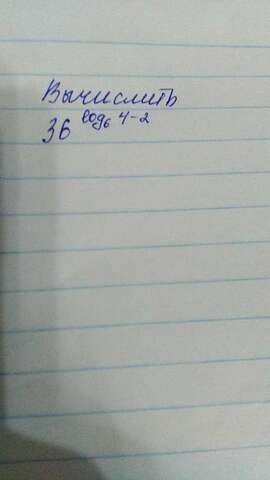 Вычислить
36^log₆ 4-2